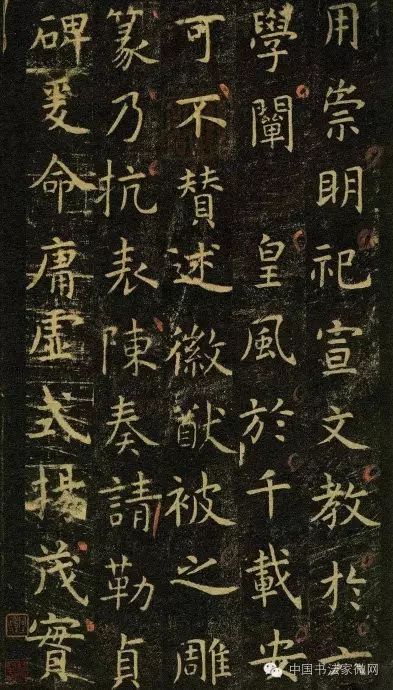 用崇明祀宣文教於
學闡 皇風於千載安
可不贊述徽猷被之雕
篆乃抗表陳奏請勒貞
碑爰命庸虛式揚茂實
中国书法家微网